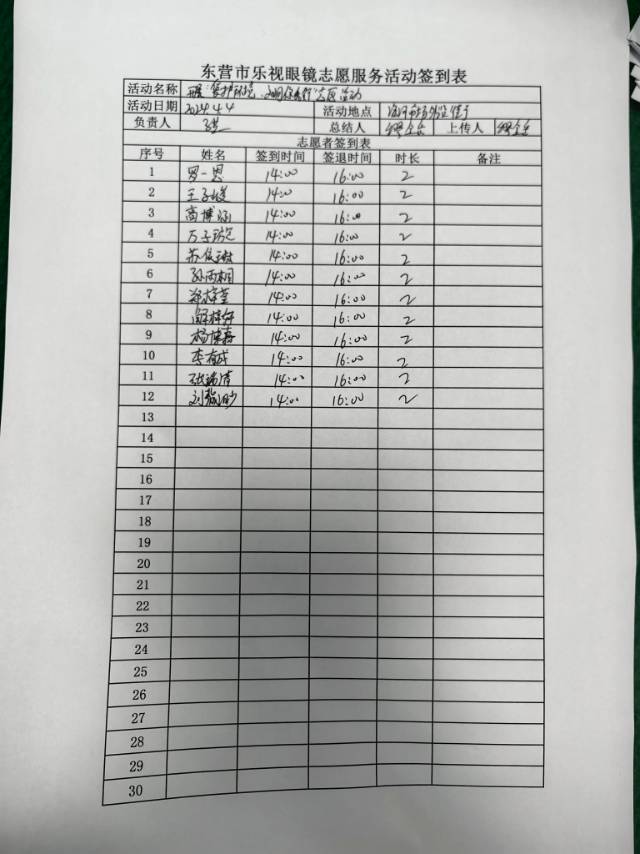 东营市乐视眼镜志愿服务活动签到表
活动名称 开展"爱护环境 文明你我行"志愿活动
活动日期 2024.4.4 活动地点
负责人 总结人 上传人
志愿者签到表
序号 姓名 签到时间 签退时间 时长 备注
1 罗一恩 14:00 16:00 2
2 14:0 16:00 2
3 高博涵 14:00 16:00 2
4 万子 14:00 16:00 2
5 苏 14:00 16:00 2
6 孙雨桐 14:00 16:00 2
7 郑梓萱 14:00 16:00 2
8 14:00 16:00 2
9 杨博 14:00 16:00 2
10 李 14:00 16:00 2
11 张 14:00 16:00 2
12 刘 14:00 16:00 2
13
14
15
16
17
18
19
20
21
22
23
24
25
26
27
28
29
30